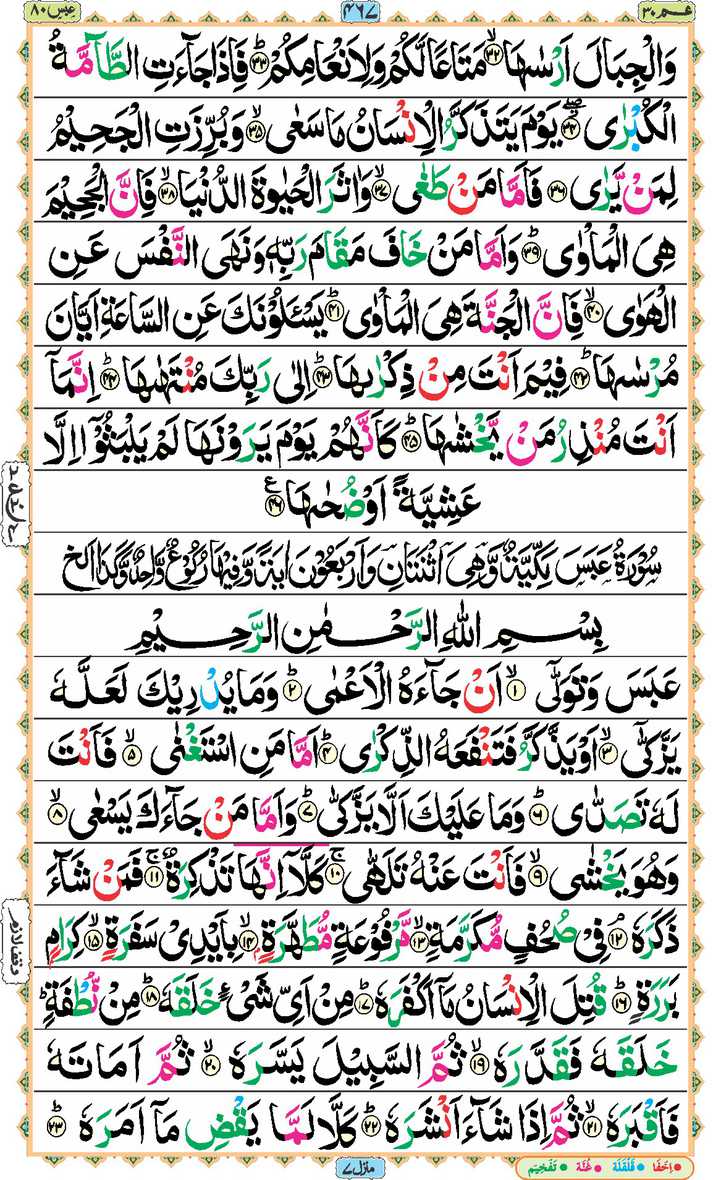 عبس ٨٠
٤٦٧
عـم ٣٠
وَالْجِبَالَ اَرْسٰىهَا ۙ﴿۳۲﴾ مَتَاعًا لَّكُمْ وَلِاَنْعَامِكُمْ ؕ﴿۳۳﴾ فَاِذَا جَآءَتِ الطَّآمَّةُ
الْكُبْرٰى ۖ﴿۳۴﴾ يَوْمَ يَتَذَكَّرُ الْاِنْسَانُ مَا سَعٰى ۙ﴿۳۵﴾ وَبُرِّزَتِ الْجَحِيْمُ
لِمَنْ يَّرٰى ﴿۳۶﴾ فَاَمَّا مَنْ طَغٰى ۙ﴿۳۷﴾ وَاٰثَرَ الْحَيٰوةَ الدُّنْيَا ۙ﴿۳۸﴾ فَاِنَّ الْجَحِيْمَ
هِىَ الْمَاْوٰى ؕ﴿۳۹﴾ وَاَمَّا مَنْ خَافَ مَقَامَ رَبِّهٖ وَنَهَى النَّفْسَ عَنِ
الْهَوٰى ۙ﴿۴۰﴾ فَاِنَّ الْجَنَّةَ هِىَ الْمَاْوٰى ؕ﴿۴۱﴾ يَسْـَٔلُوْنَكَ عَنِ السَّاعَةِ اَيَّانَ
مُرْسٰىهَا ؕ﴿۴۲﴾ فِيْمَ اَنْتَ مِنْ ذِكْرٰىهَا ؕ﴿۴۳﴾ اِلٰى رَبِّكَ مُنْتَهٰىهَا ؕ﴿۴۴﴾ اِنَّمَاۤ
اَنْتَ مُنْذِرُ مَنْ يَّخْشٰىهَا ؕ﴿۴۵﴾ كَاَنَّهُمْ يَوْمَ يَرَوْنَهَا لَمْ يَلْبَثُوْۤا اِلَّا
عَشِيَّةً اَوْ ضُحٰىهَا ﴿۴۶﴾ ع
سُوْرَةُ عَبَسَ مَكِّيَّةٌ وَّهِىَ اثْنَتَانِ وَاَرْبَعُوْنَ اٰيَةً وَّفِيْهَا رُكُوْعٌ وَّاحِدٌ وَّكَذَا الخ
بِسْمِ اللهِ الرَّحْمٰنِ الرَّحِيْمِ
عَبَسَ وَتَوَلّٰٓى ۙ﴿۱﴾ اَنْ جَآءَهُ الْاَعْمٰى ؕ﴿۲﴾ وَمَا يُدْرِيْكَ لَعَلَّهٗ
يَزَّكّٰٓى ۙ﴿۳﴾ اَوْ يَذَّكَّرُ فَتَنْفَعَهُ الذِّكْرٰى ؕ﴿۴﴾ اَمَّا مَنِ اسْتَغْنٰى ۙ﴿۵﴾ فَاَنْتَ
لَهٗ تَصَدّٰى ؕ﴿۶﴾ وَمَا عَلَيْكَ اَلَّا يَزَّكّٰى ؕ﴿۷﴾ وَاَمَّا مَنْ جَآءَكَ يَسْعٰى ۙ﴿۸﴾
وَهُوَ يَخْشٰى ۙ﴿۹﴾ فَاَنْتَ عَنْهُ تَلَهّٰى ۚ﴿۱۰﴾ كَلَّاۤ اِنَّهَا تَذْكِرَةٌ ۚ﴿۱۱﴾ فَمَنْ شَآءَ
ذَكَرَهٗ ۘ﴿۱۲﴾ فِىْ صُحُفٍ مُّكَرَّمَةٍ ۙ﴿۱۳﴾ مَّرْفُوْعَةٍ مُّطَهَّرَةٍ ۙ﴿۱۴﴾ بِاَيْدِىْ سَفَرَةٍ ۙ﴿۱۵﴾ كِرَامٍۢ
بَرَرَةٍ ؕ﴿۱۶﴾ قُتِلَ الْاِنْسَانُ مَاۤ اَكْفَرَهٗ ؕ﴿۱۷﴾ مِنْ اَىِّ شَىْءٍ خَلَقَهٗ ؕ﴿۱۸﴾ مِنْ نُّطْفَةٍ ؕ
خَلَقَهٗ فَقَدَّرَهٗ ۙ﴿۱۹﴾ ثُمَّ السَّبِيْلَ يَسَّرَهٗ ۙ﴿۲۰﴾ ثُمَّ اَمَاتَهٗ
فَاَقْبَرَهٗ ۙ﴿۲۱﴾ ثُمَّ اِذَا شَآءَ اَنْشَرَهٗ ؕ﴿۲۲﴾ كَلَّا لَمَّا يَقْضِ مَاۤ اَمَرَهٗ ؕ﴿۲۳﴾
منزل ٧
اِخْفَا • قَلْقَلَة • غُنَّة • تَفْخِيْم